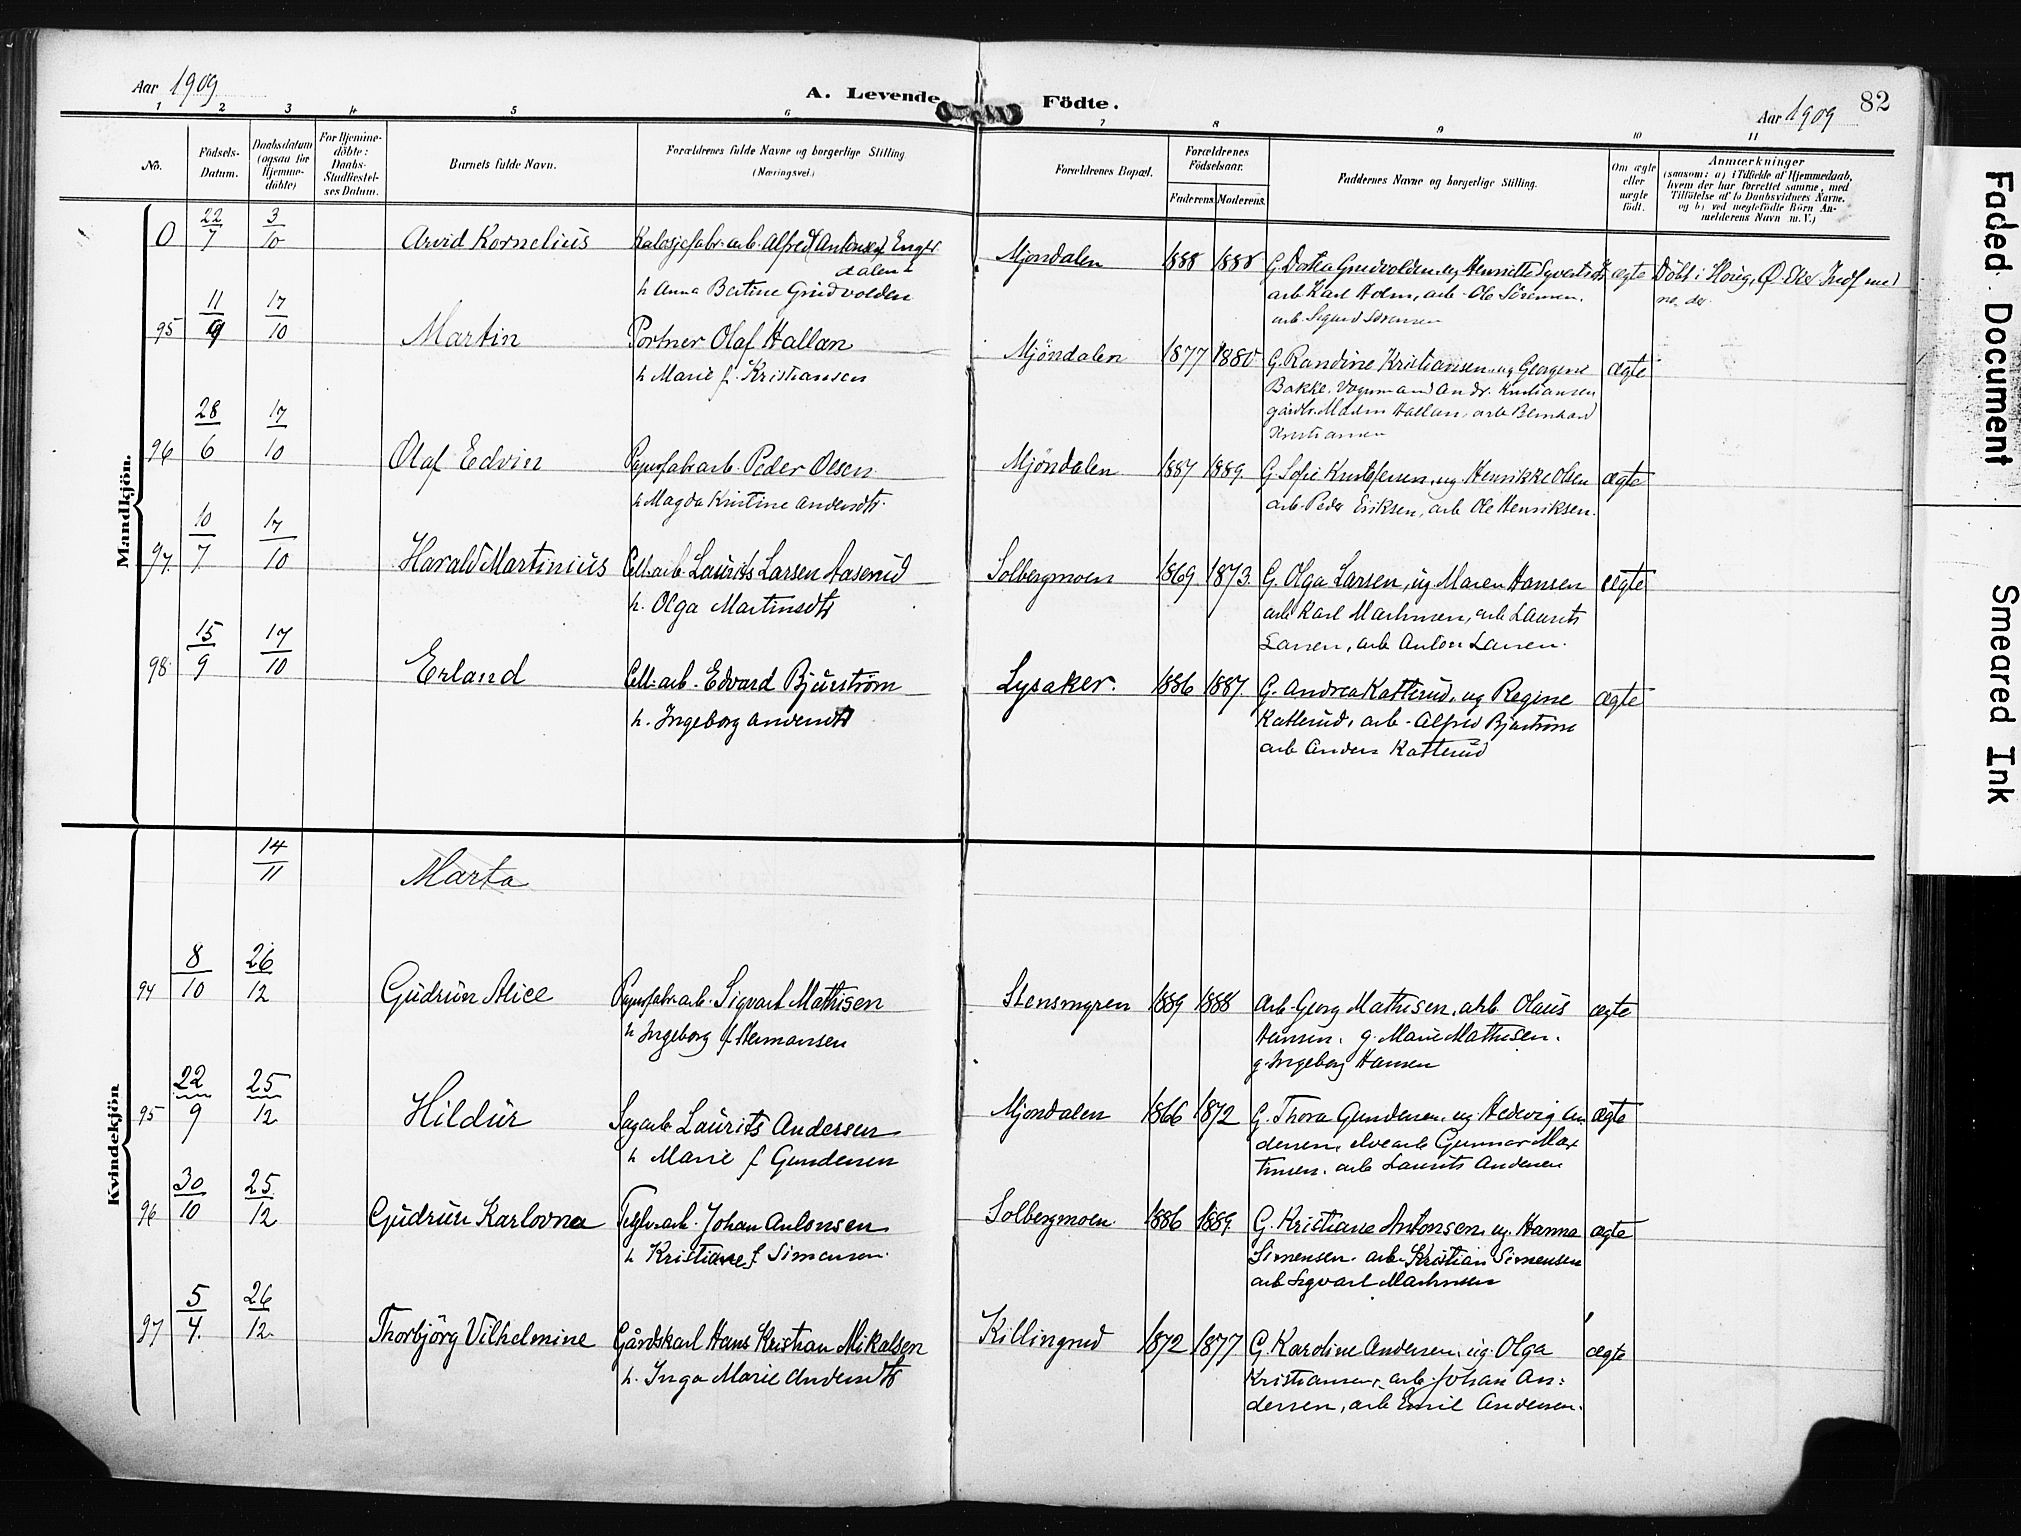 Aar 1909
A. Levende Födte.
Aar 1909
82
1 2 3 4 5 6 7 8 9 10 11
No.
Födsels-Datum.
Daabsdatum (ogsaa for Hjemme-döbte)
For Hjemme-döbte: Daabs-Stadfæstel-ses Datum.
Barnets fulde Navn.
Forældrenes fulde Navne og borgerlige Stilling (Næringsvei.)
Forældrenes Bopæl.
Forældrenes Födselsaar.
Faderens. Moderens.
Faddernes Navne og borgerlige Stilling.
Om ægte eller uægte födt.
Anmærkninger
(saasom: a) i Tilfælde af Hjemmedaab,
hvem der har forrettet samme, med
Tilföielse af to Daabsvidners Navne.
og b) ved uægtefödte Börn An-
melderens Navn m. V.)
Mandkjön.
0 22/7 3/10 Arvid Kornelius
Kalosjefabr. arb. Alfred Antonsen Enger
dalen
h. Anna Bertine Grindvolden
Mjondalen 1888 1888
G. Dortea Grindvolden og Henriette Syvertsen
arb Karl Holm, arb. Ole Sörensen.
arb. Sigurd Sörensen
ægte
95 11/9 17/10 Martin
Portner Olaf Hallan
h Marie f. Kristiansen
Mjöndalen 1877 1880
G. Randine Kristiansen og Georgine
Bakke. Vognmand Andr. Kristiansen
gårdbr. Martin Hallan, arb Bernhard
Kristiansen
ægte
96 28/6 17/10 Olaf Edvin
Papirfabarb. Peder Olsen
h Magda Kristine Andersdtr.
Mjöndalen 1887 1889.
G. Sofie Kristofersen, og Henrikke Olsen
arb. Peder Eriksen, arb Ole Henriksen.
ægte
97. 10/7 17/10 Harald Martinius
Cell. arb. Laurits Larsen Aaserud
h. Olga Martinsdtr
Solbergmoen 1869 1873.
G. Olga Larsen, og Maren Hansen
arb Karl Martinsen, arb Laurits
Larsen, arb Anton Larsen.
ægte
98. 15/9 17/10 Erland
Cell. arb. Edvard Bjurström
h. Ingeborg Andersdtr
Lysaker. 1886 1887.
G. Andrea Katterud, og Regine
Katterud, arb. Alfred Bjurström
arb Anders Katterud
ægte
Kvindekjön
14/11 Marta
94 8/10 26/12 Gudrun Alice
Papirfabrarb. Sigvart Mathisen
h Ingeborg f Hermansen
Stensmyren 1889 1888
Arb. Georg Mathisen, arb. Olaus
Hansen. g. Marie Mathisen.
g. Ingeborg Hansen
ægte
95 22/9 25/12 Hildur
Sagarb Laurits Andersen
h Marie f Gundersen
Mjondalen 1866 1872
G. Thora Gundersen og Hedevig An
dersen, elvearb Gunnar Mar
tinsen. arb Laurits Andersen
ægte
96 30/10 25/12 Gudrun Karlovna
Teglv. arb. Johan Antonsen
h Kristiane f Simensen.
Solbergmoen. 1886 1889
G. Kristiane Antonsen, og Hanna
Simensen. arb Kristian Simensen
arb Sigvart Martinsen
ægte
97 5/4. 26/12. Thorbjörg Vilhelmine
Gårdskarl Hans Kristian Mikalsen
h. Inga Marie Andersdtr
Killingrud 1872 1877
G. Karoline Andersen, og Olga
Kristiansen, arb. Johan An:
dersen, arb Emil Andersen.
ægte
Faded Document
Smeared Ink